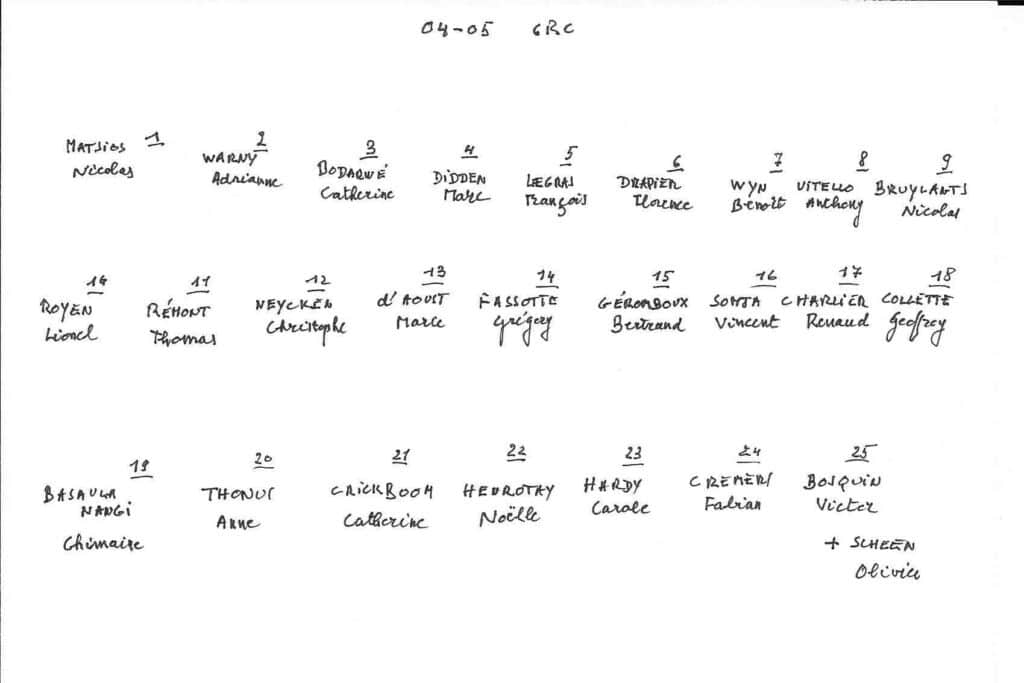 04-05 GRC
1 2 3 4 5 6 7 8 9
MATJIOS WARNY BODARWÉ DIDDEN LEGRAS DRAPIER WYN VITELLO BRUYLANTS
Nicolas Adrianne Catherine Marc François Florence Benoît Anthony Nicolas
10 11 12 13 14 15 16 17 18
ROYEN RÉMONT NEYCKEN d'AOUST FASSOTTE GÉROMBOUX SONTA CHARLIER COLLETTE
Lionel Thomas Christophe Marce Grégory Bertrand Vincent Renaud Geoffrey
19 20 21 22 23 24 25
BASAULA THONUS CRICKBOOM HEUROTAY HARDY CREMERS BOSQUIN
NANGI Anne Catherine Noëlle Carole Fabian Victor
Ghimaire
+ SCHEEN
Olivier